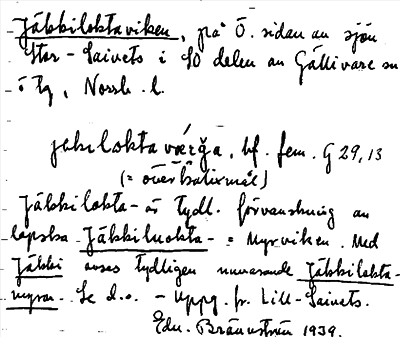 Jäkkiloktaviken, på Ö. sidan av sjön
Stor-Saivets i SO delen av Gällivare sn
o tg, Norrb. l.
jekilokta, bf. fem. G 29,13
(= överkalixmål)
Jäkkilokta- är tydl. förvanskning av
lapska Jäkkiluokta- = Myrviken. Med
Jäkki avses tydligen nuvarande Jäkkilokta-
myran. Se d.o. - Uppg. fr. Lill-Saivets.
Edv. Brännström 1939.